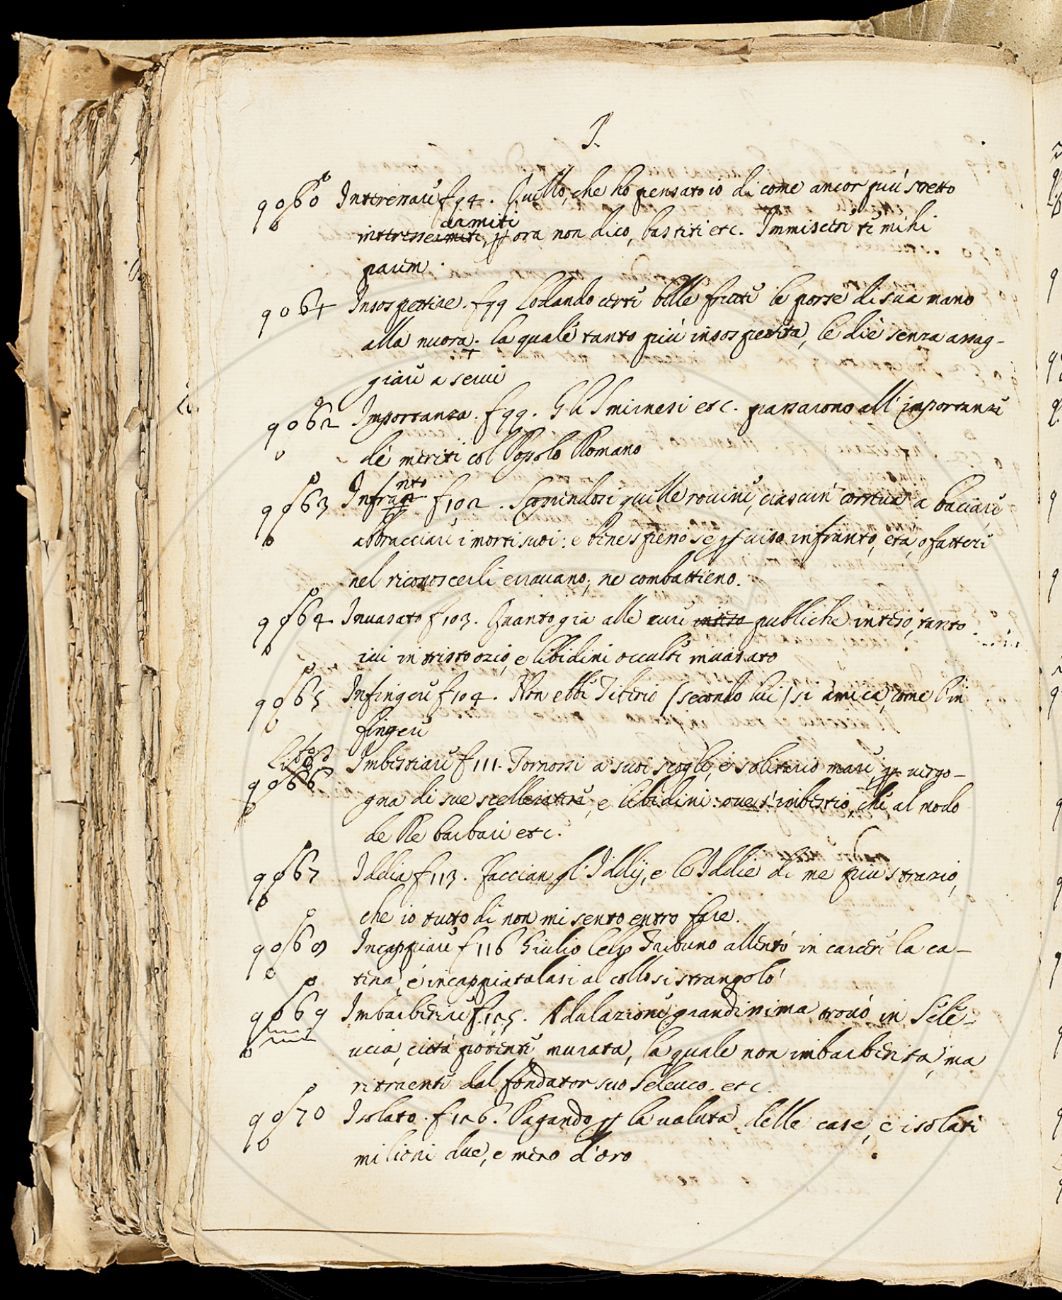 I.
9060 Interessare f 94. Quello, che ho pensato io di come ancor più stretto
darmiti
interesseimiti, p ora non dico, bastiti etc. Immisceri ti mihi
parum.
9061 Insospettire. f 99 Lodando certe belle frutte le porse di sua mano
alla nuora. la quale tanto più insospettita, le diè senza assag-
giare a servi
9062 Importanza. f 99. Gli Smirnesi etc. passarono all'importanze
de meriti col Popolo Romano
nto
9063 Infra f 102. quelle rovine, ciascun correva a baciare
abbracciare i morti suoi: e bene spesso se p viso infranto, età o fattezze
nel riconoscerli erravano, ne combattieno.
9064 Invasato f 103. Quanto già alle cure inteso publiche inteso, tanto
ivi in tristo ozio, e libidini occulte invasato
9065 Infingere f 104. Non ebbe Tiberio (secondo lui) sì amica come l'in
fingere
9066 Imbestiare f 111. Tornossi a suoi scogli, e solitario mare p vergo-
gna di sue scelleratezze, e libidini: ove s'imbestiò, che al modo
de Re barbari etc.
9067 Iddia f 113. Faccian gl'Iddij, e le Iddie di me più strazio,
che io tutto di non mi sento entro fare.
9068 Incappiare f 116 Giulio Celso Tribuno allentò in carcere la ca-
tena, e incappiatalasi al collo si strangolò
9069 Imbarberire f 125. Adulazione grandissima trovò in Sele-
ucia, città potente, murata, la quale non imbarberita, ma
ritraente dal fondator suo Seleuco. etc.
9070 Isolato. f 126. Pagando p la valuta delle case, e isolati
milioni due, e mezo d'oro